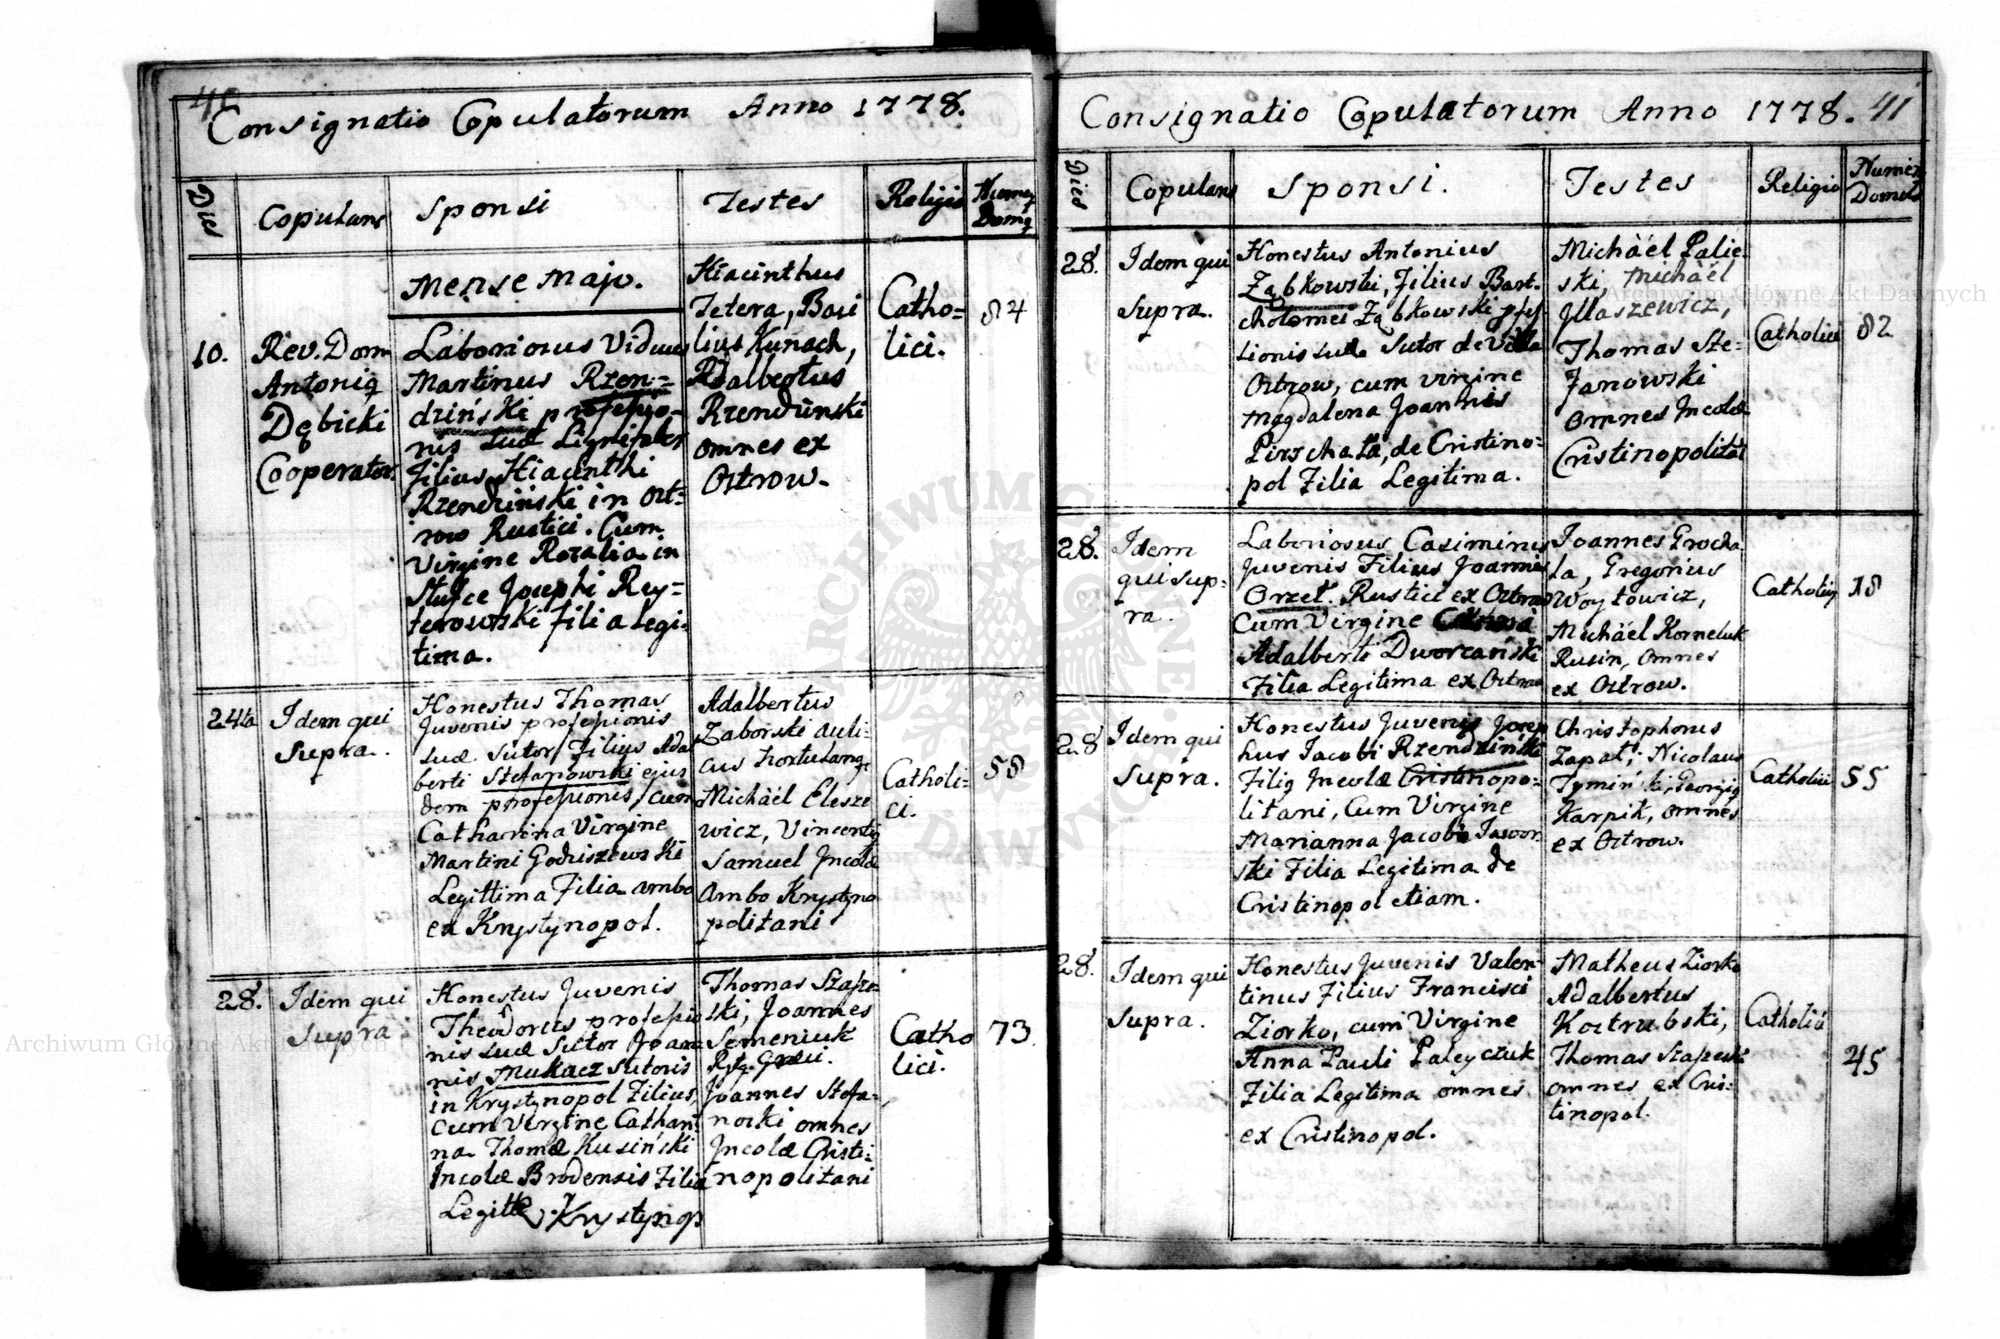 40
Consignatio Copulatorum Anno 1778.
Dies
Copulans
Sponsi
Testes
Religio
Mense Majo.
10.
Rev. Dom
Antoniq
Dębicki
Cooperator.
Laboriosus Viduus
Martinus Rzen=
dziński profeſsyo=
nis suæ Lignifaber
Filius Hiacinthi
Rzendziński in Ost=
row Rustici. Cum
Virgine Rozalia in
Josephi Rey=
terowski filia legi=
tima.
Hiacinthus
Tetera, Basi
lius Kunach,
Adalbertus
Rzendziński
omnes ex
Ostrow.
Catho=
lici.
84
24ta
Idem qui
Supra.
Honestus Thomas
Juvenis profeſsionis
suæ Sutor Filius Adal
berti Stefanowski ejus
dem profeſsionis, cum
Catharina Virgine
Martini Godziszewski
Legittima Filia ambo
ex Krystynopol.
Adalbertus
Zaborski auli=
cus hortulanq
Michäel Elesze
wicz, Vincenty
Samuel Incolæ
Ambo Krystyno
politani
Catholi=
ci.
58
28.
Idem qui
Supra
Honestus Juvenis
Theodorus profeſsio
nis suæ Sutor Joan
nis Mukacz sutoris
in Krystynopol Filius,
cum Virgine Cathari
na Thomæ Kusiński
Incolæ Brodensis Filia
Legitt. Krystynop
Thomas Szafra
ski, Joannes
Semeniuk
Joannes Stefa=
noski omnes
Incolæ Cristi=
nopolitani
Catho
lici.
73
Consignatio Copulatorum Anno 1778. 41
Dies
Copulans
Sponsi.
Testes
Religio
Numer
Domus
28.
Idem qui
Supra.
Honestus Antonius
Ząbkowski, Filius Bart=
cholomei Ząbkowski pfeſ=
sionis suæ Sutor de Villa
Ostrow, cum virgine
Magdalena Joannis
de Cristino=
pol Filia Legitima.
Michäel Palie
ski, Michäel
Jllaszewicz,
Thomas Ste=
fanowski
omnes Incolæ
Cristinopolitai
Catholici
82
28.
Idem
qui sup=
ra.
Laboriosus Casimirus
Juvenis Filius Joannis
Orzeł. Rustici ex Ostrow
Cum Virgine
Adalberti Dworzański
Filia Legitima ex Ostrow
Joannes Grocha
la, Gregorius
Woytowicz,
Michäel Korneluk
Rusin, omnes
ex Ostrow.
Catholicy
18
28
Idem qui
Supra.
Honestus Juvenis Josep
hus Jacobi Rzendziński
Filiq Incolæ Cristinopo=
litani, Cum Virgine
Marianna Jacobi Jawor
ski Filia Legitima de
Cristinopol etiam.
Christophorus
Zapał; Nicolaus
Tymiński, Georgiq
Karpik, omnes
ex Ostrow.
Catholici
55
28.
Idem qui
Supra.
Honestus Juvenis Valen=
tinus Filius Francisci
Ziorko, cum Virgine
Anna Pauli Paleyczuk
Filia Legitima omnes
ex Cristinopol.
Matheus Ziorko
Adalbertus
Kostrubski,
Thomas Szafrański
omnes ex Cris=
tinopol.
Catholici
45
Archiwum Główne Akt Dawnych
Archiwum Główne Akt Dawnych
ARCHIWUM GŁÓWNE AKT DAWNYCH